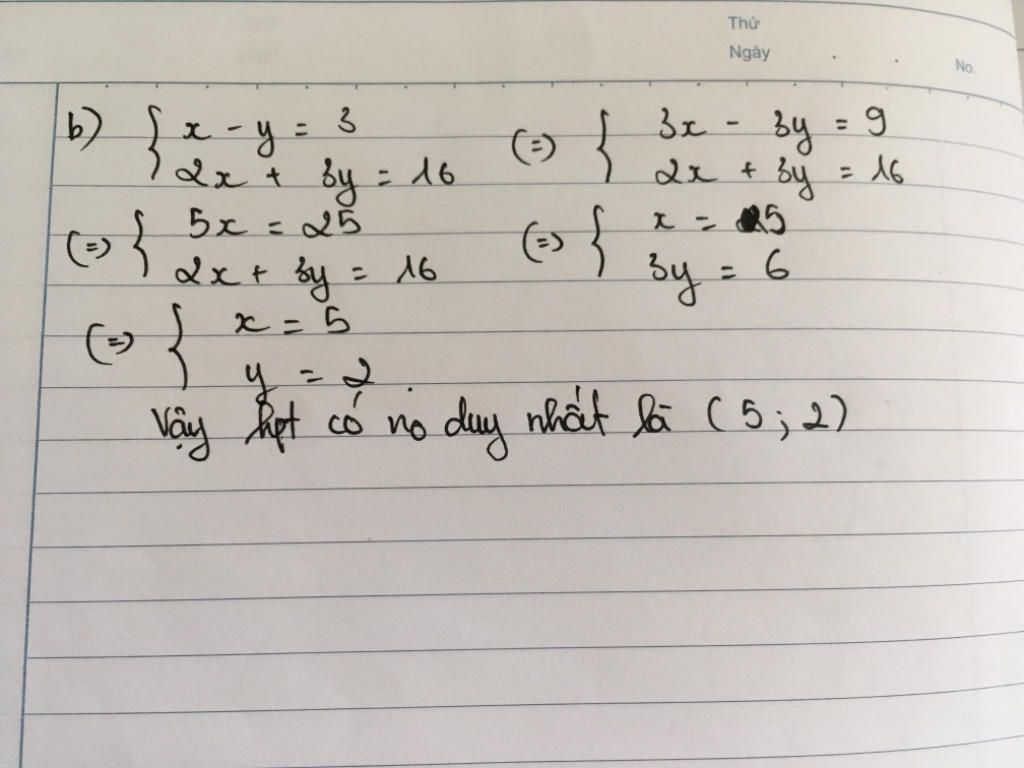 Thứ
Ngày
No.
b) { x - y = 3 (=) { 3x - 3y = 9
2x + 3y = 16 2x + 3y = 16
(=) { 5x = 25 (=) { x = 5
2x + 3y = 16 3y = 6
(=) { x = 5
y = 2
Vậy hpt có no duy nhất là (5; 2)